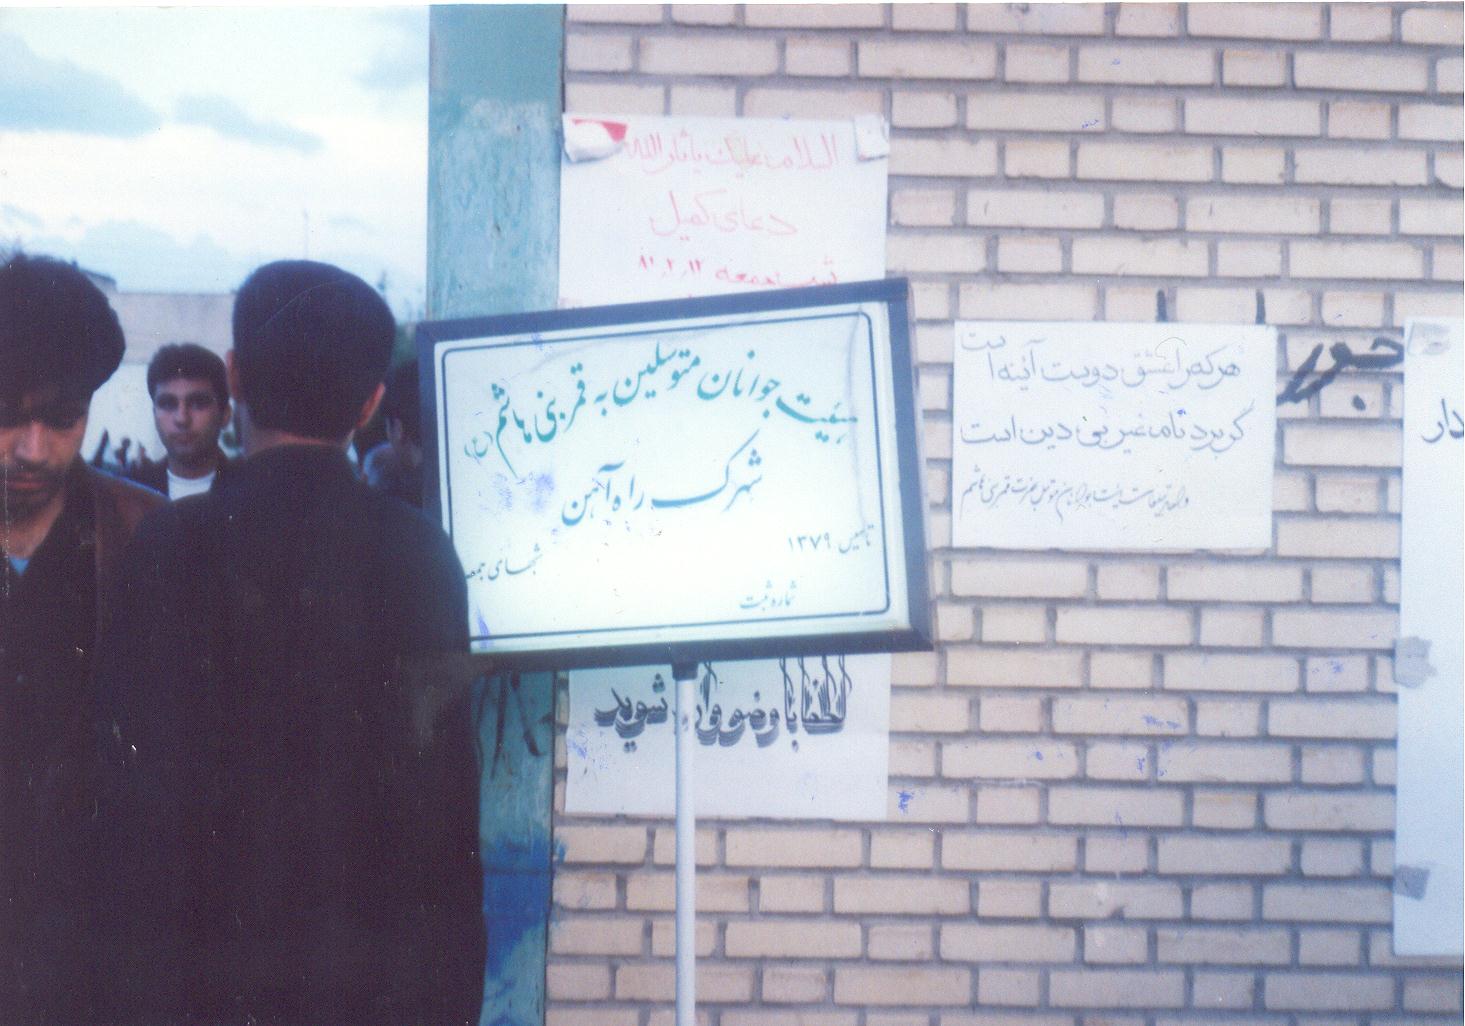 السلام علیک یا ثارالله
دعای کمیل
شب جمعه ۸۱٫۲٫۱۲
هیئت جوانان متوسلین به قمر بنی هاشم (ع)
شهرک راه آهن
تاسیس ۱۳۷۹
شبهای جمعه
شماره ثبت
لطفا با وضو وارد شوید
هر که را عشق دوست آئینه است
گر برد نام غیر بی دین است
جوانان متوسل حضرت قمر بنی هاشم
دار